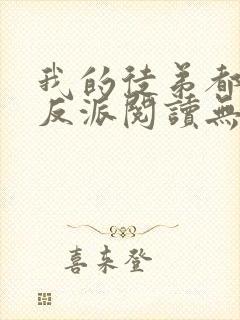 我的徒弟都
反派閱讀無
喜来登